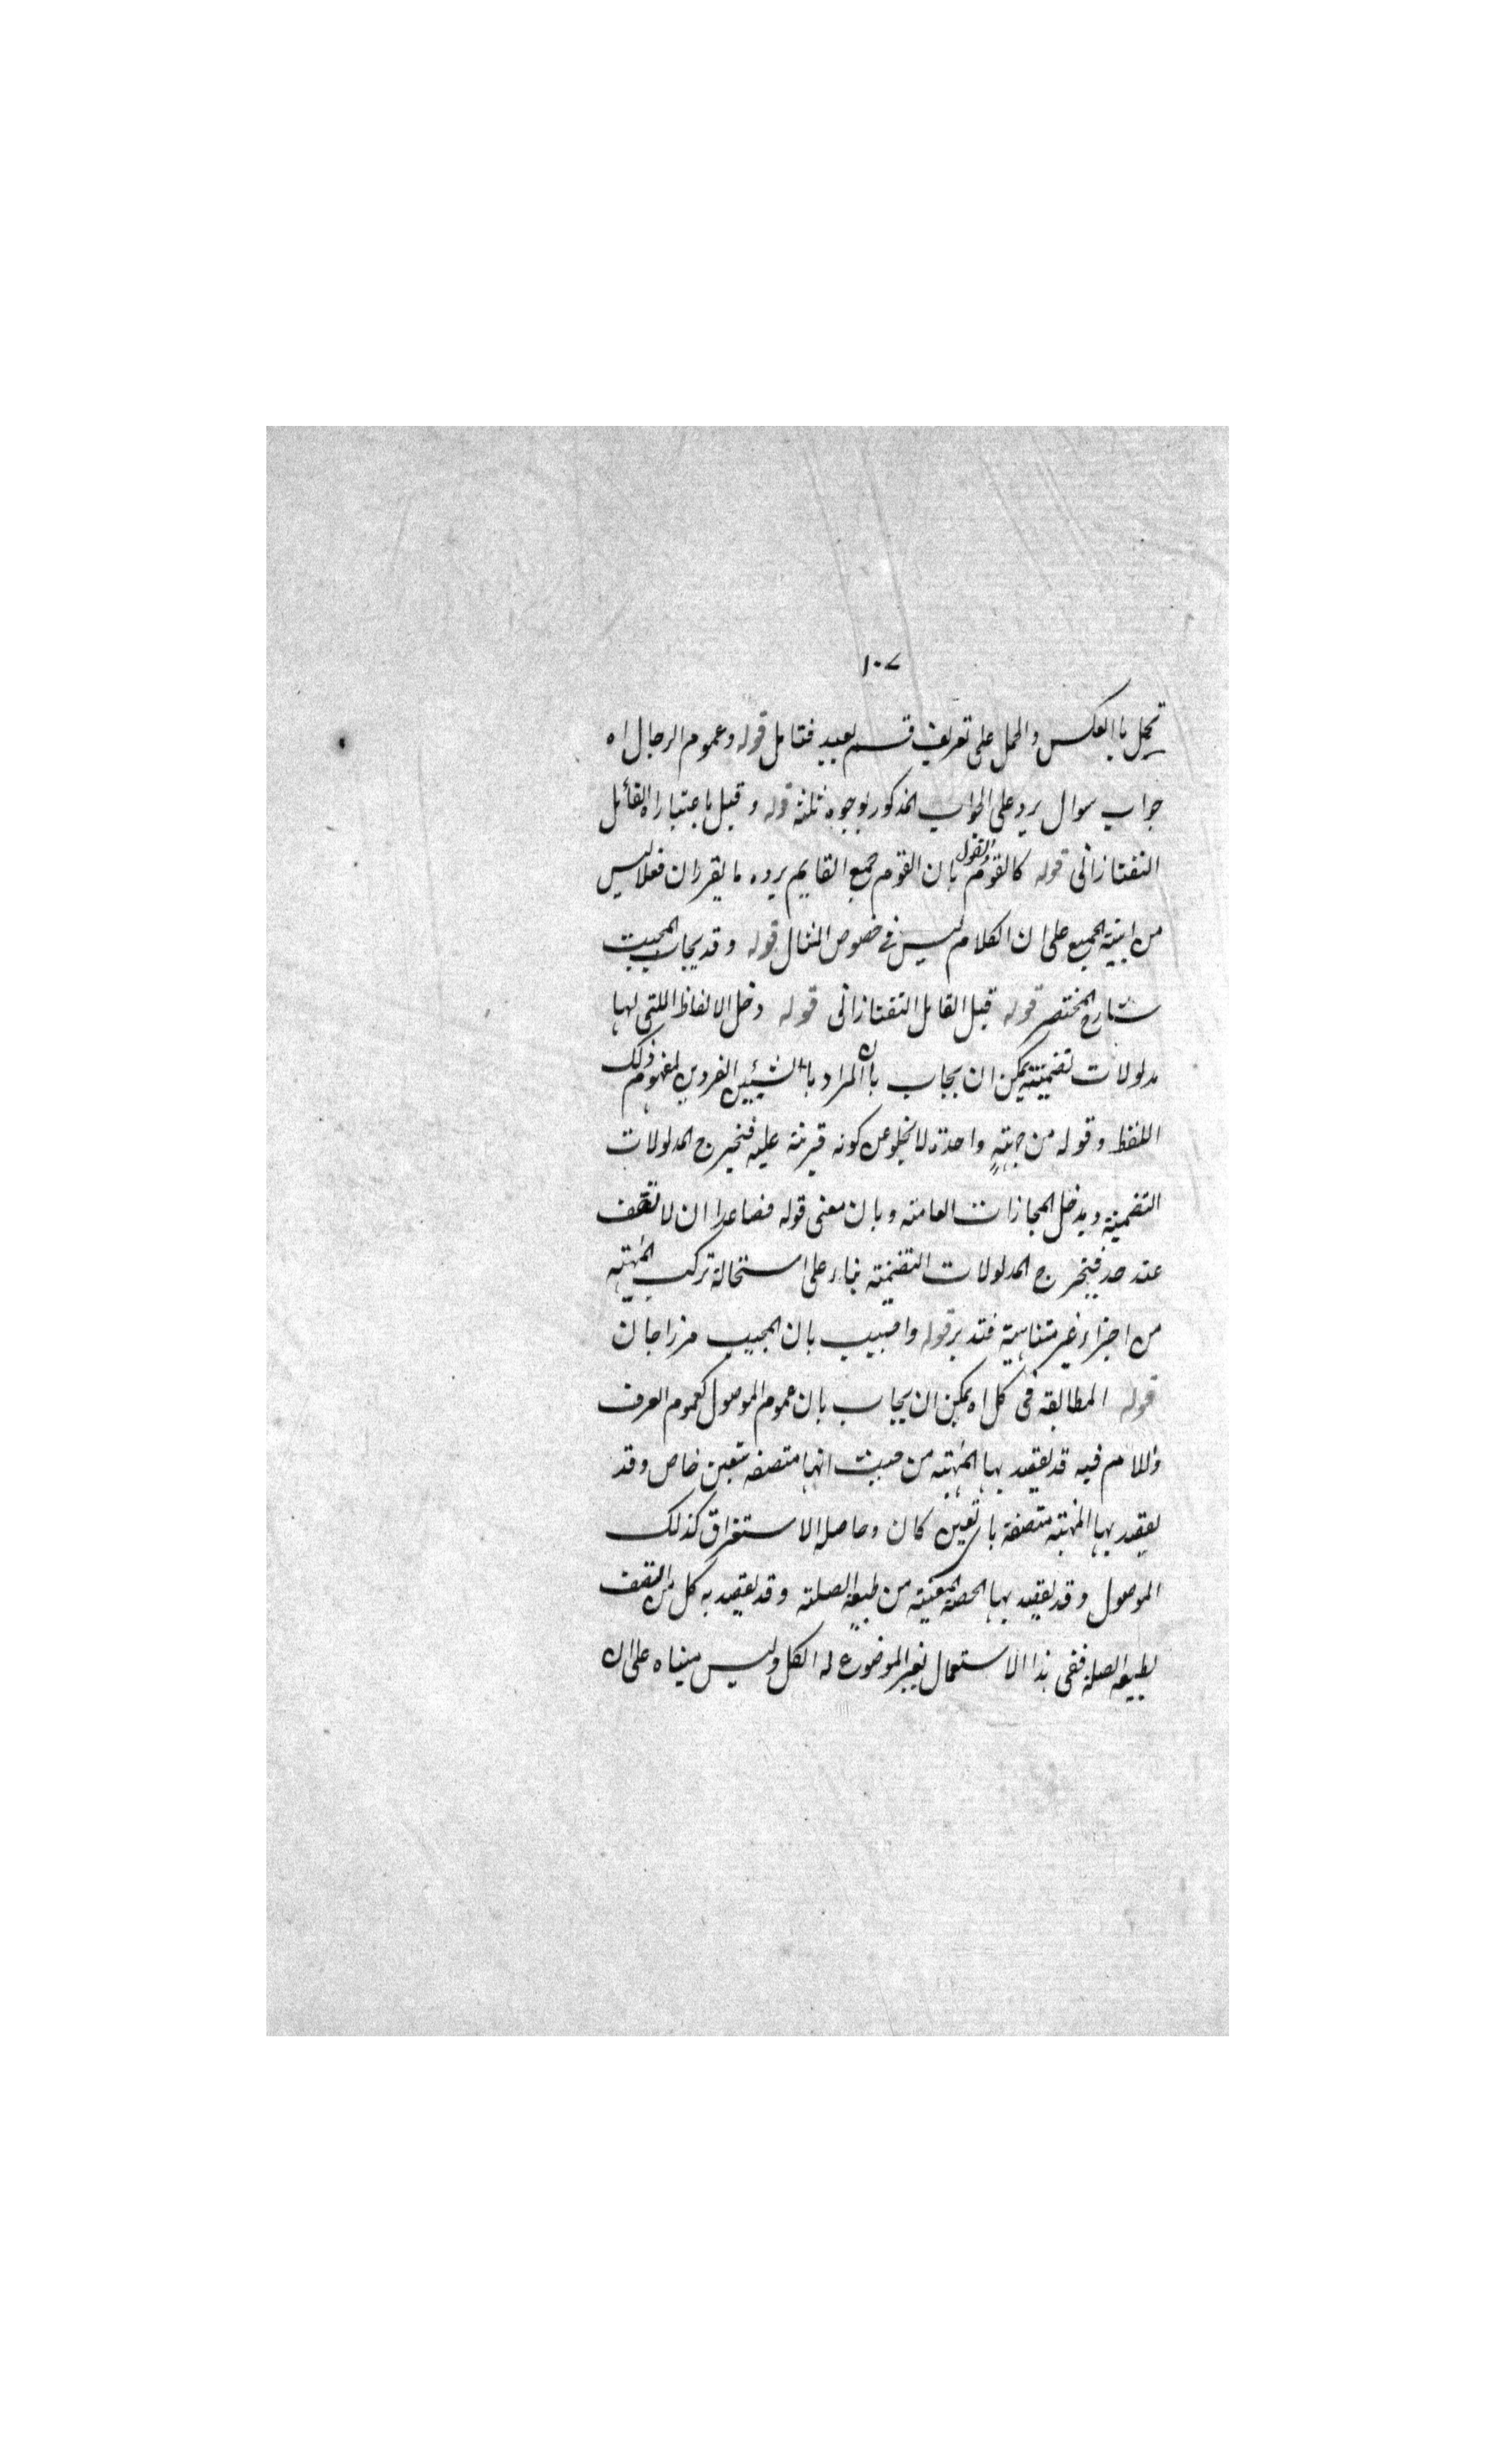 ١٠٧
تحل بالعكس والحمل على تعريف قسم بعيد فتامل قوله وعموم الرجال اه
جواب سوال يرد على الجواب المذكور بوجوه ثلثة قوله وقيل باعتبار اه القائل
التفتازانى قوله كالقوم القول بان القوم جمع القايم يرده ما يقرر ان فعلا ليس
من ابنية الجمع على ان الكلام ليس فى خصوص المثال قوله وقد يجاب المجيب
شارح المختصر قوله قيل القايل التفتازانى قوله دخل الالفاظ اللتى لها
مدلولات تضمنية يمكن ان يجاب بان المراد بالشيئين الفردين لمفهوم ذلك
اللفظ وقوله من جهة واحدة لا يخلو عن كونه قرينة عليه فيخرج المدلولات
التضمنية ويدخل المجازات العامة وبان معنى قوله فصاعدا ان لا تقف
عند حد فيخرج المدلولات التضمنية بناء على استحالة تركب المهية
من اجزاء غير متناهية فتدبر قوله واجيب بان المجيب مرزاجان
قوله المطابقة فى كل اه يمكن ان يجاب بان عموم الموصول كعموم المعرف
واللام فيه قد يقصد بها المهية من حيث انها متصفة بتعين خاص وقد
يقصد بها المهية متصفة باى تعين كان وحاصله الاستغراق كذلك
الموصول وقد يقصد بها الحصة المعينة من طبيعة الصلة وقد يقصد به كل من اتصف
بطبيعة الصلة ففى هذا الاستعمال الموضوع له الكل وليس مبناه على ان